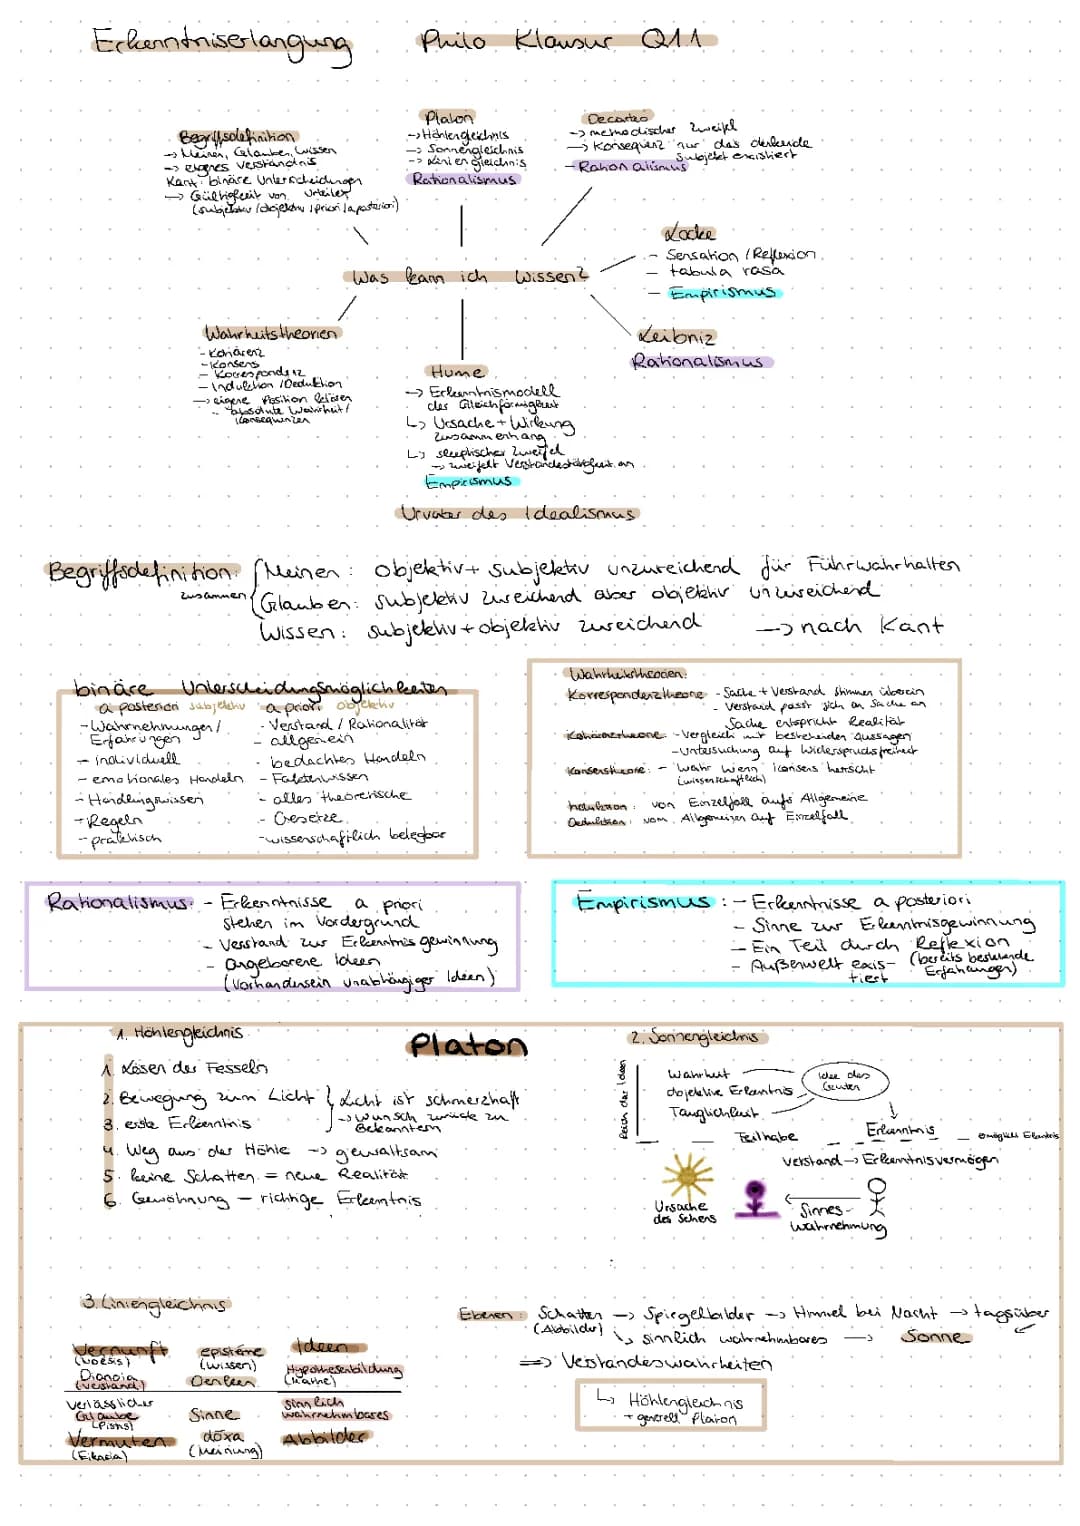 Erkenntniserlangung Philo Klausur Q1.1
Begriffsdefinition
-> Meinen, Glauben, Wissen
-> eigenes Verständnis
Kant: binäre Unterscheidungen
-> Gültigkeit von Urteilen
(subjektiv/objektiv/priori/a posteriori)
Platon
-> Höhlengleichnis
-> Sonnengleichnis
-> Liniengleichnis
Rationalismus
Decartes
-> methodischer Zweifel
-> Konsequenz: nur das denkende
Subjekt existiert
- Rationalismus
Locke
- Sensation/Reflexion
- tabula rasa
- Empirismus
Was kann ich Wissen?
Leibniz
Rationalismus
Wahrheitstheorien
- Kohärenz
- Konsens
- Korrespondenz
- Induktion/Deduktion
-> eigene Position
- absolute Wahrheit/
Konsequenzen
Hume
-> Erkenntnismodell
der Gleichförmigkeit
↳ Ursache + Wirkung
zusammenhang
↳ skeptischer Zweifel
-> zweifelt Verstandestätigkeit an
Empirismus
Urvater des Idealismus
Begriffsdefinition: Meinen: objektiv + subjektiv unzureichend für Führwahrhalten
zusammen Glauben: subjektiv zureichend aber objektiv unzureichend
Wissen: subjektiv + objektiv zureichend -> nach Kant
binäre Unterscheidungsmöglichkeiten
a posteriori subjektiv
- Wahrnehmungen/
Erfahrungen
- individuell
- emotionales Handeln
- Handlungswissen
- Regeln
- praktisch
a priori objektiv
- Verstand/Rationalität
- allgemein
- bedachtes Handeln
- Faktenwissen
- alles theoretische
- Gesetze
- wissenschaftlich belegbar
Wahrheitstheorien:
Korrespondenztheorie - Sache + Verstand stimmen überein
- Verstand passt sich an Sache an
Sache entspricht Realität
Kohärenztheorie - Vergleich mit bestehenden Aussagen
- Untersuchung auf Widerspruchsfreiheit
Konsenstheorie: - wahr wenn Konsens herrscht
(wissenschaftlich)
Induktion: von Einzelfall aufs Allgemeine
Deduktion: vom Allgemeinen auf Einzelfall
Rationalismus: - Erkenntnisse a priori
stehen im Vordergrund
- Verstand zur Erkenntnisgewinnung
- angeborene Ideen
(Vorhandensein unabhängiger Ideen)
Empirismus: - Erkenntnisse a posteriori
- Sinne zur Erkenntnisgewinnung
- Ein Teil durch Reflexion
(bereits bestehende
Erfahrungen)
- Außenwelt exis-
tiert
Platon
1. Höhlengleichnis
1. Lösen der Fesseln
2. Bewegung zum Licht } Licht ist schmerzhaft
3. erste Erkenntnis -> Wunsch zurück zu
Bekanntem
4. Weg aus der Höhle -> gewaltsam
5. keine Schatten = neue Realität
6. Gewöhnung - richtige Erkenntnis
2. Sonnengleichnis
Reich der Ideen
Wahrheit
objektive Erkenntnis
Tauglichkeit
Idee des
Guten
Teilhabe
Erkenntnis
Verstand -> Erkenntnisvermögen
Ursache
des Sehens
Sinnes-
wahrnehmung
3. Liniengleichnis
Vernunft epistéme Ideen
(Noesis) (Wissen)
Dianoia Denken Hypothesenbildung
(Verstand) (Mathe)
verlässlicher Sinne sinnlich
Glaube wahrnehmbares
(Pistis)
Vermuten dóxa Abbilder
(Eikasia) (Meinung)
Ebenen: Schatten -> Spiegelbilder -> Himmel bei Nacht -> tagsüber
(Abbilder) ↳ sinnlich wahrnehmbares -> Sonne
=> Verstandeswahrheiten
↳ Höhlengleichnis
+ generell Platon